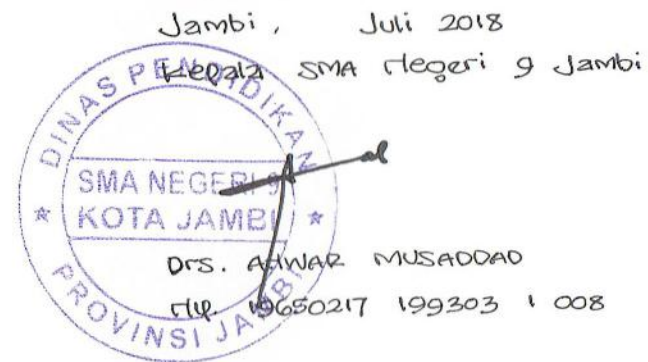 Jambi, Juli 2018
Kepala SMA Negeri 9 Jambi
DINAS PENDIDIKAN
SMA NEGERI 9
KOTA JAMBI
PROVINSI JAMBI
Drs. ANWAR MUSADDAD
NIP. 19650217 199303 1 008